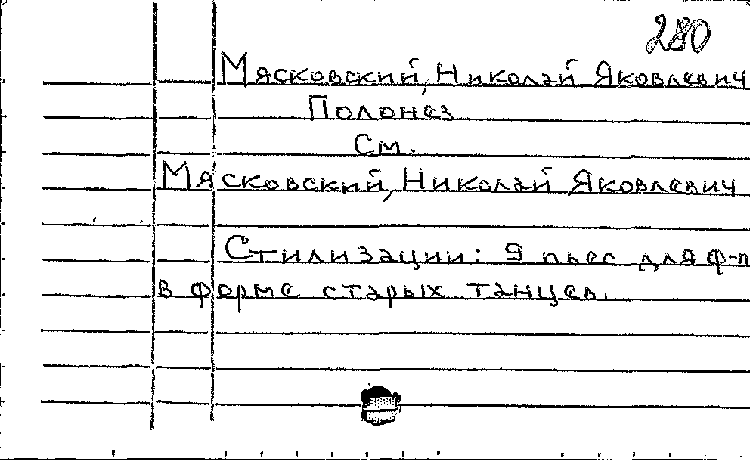 280
Мясковский, Николай Яковлевич
Полонез
См.
Мясковский, Николай Яковлевич
Стилизации: 9 пьес для ф-п
в форме старых танцев.